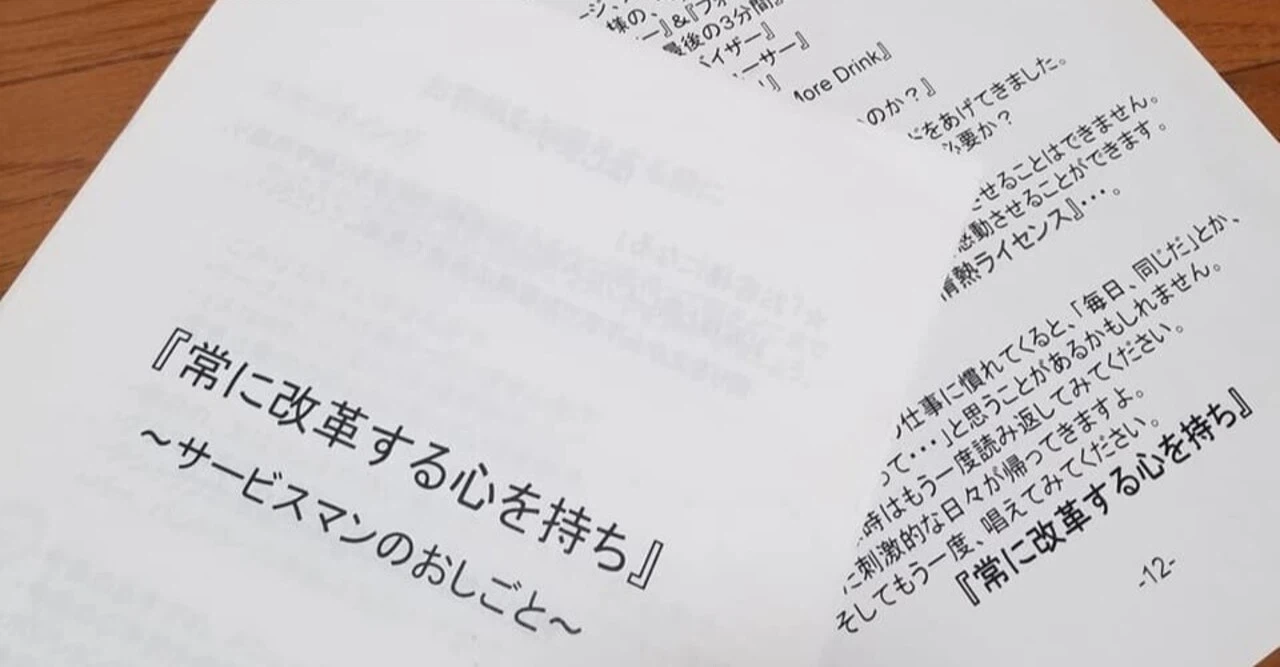 『常に改革する心を持ち』
～サービスマンのおしごと～
様の、
ー』&『フォ
最後の3分間』
バイザー』
ーサー』
More Drink』
のか？』
をあげてきました。
必要か？
させることはできません。
感動させることができます。
情熱ライセンス』・・・。
仕事に慣れてくると、「毎日、同じだ」とか、
って・・・」と思うことがあるかもしれません。
時はもう一度読み返してみてください。
に刺激的な日々が帰ってきますよ。
そしてもう一度、唱えてみてください。
『常に改革する心を持ち』
-12-